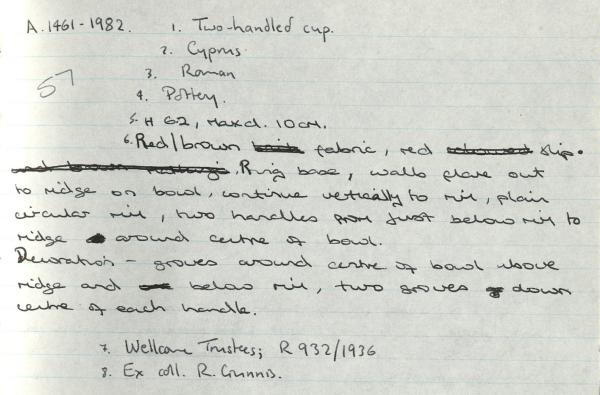 A.1461-1982. 1. Two-handled cup.
2. Cyprus
3. Roman
57
4. Pottery.
5. H 6.2, Max d. 10cm.
6. Red/brown fabric, red slip.
Ring base, walls flare out
to ridge on bowl, continue vertically to rim, plain
circular rim, two handles from just below rim to
ridge around centre of bowl.
Decoration - groves around centre of bowl above
ridge and below rim, two groves down
centre of each handle.
7. Wellcome Trustees; R 932/1936
8. Ex coll. R. Gunnis.